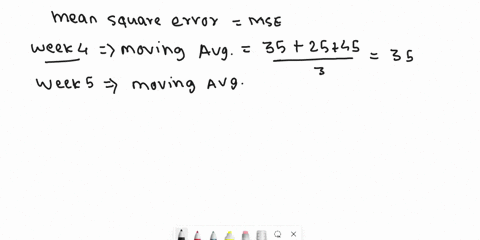 mean square error = MSE
week 4 => moving Avg. = 35 + 25 + 45 / 3 = 35
week 5 => moving Avg.